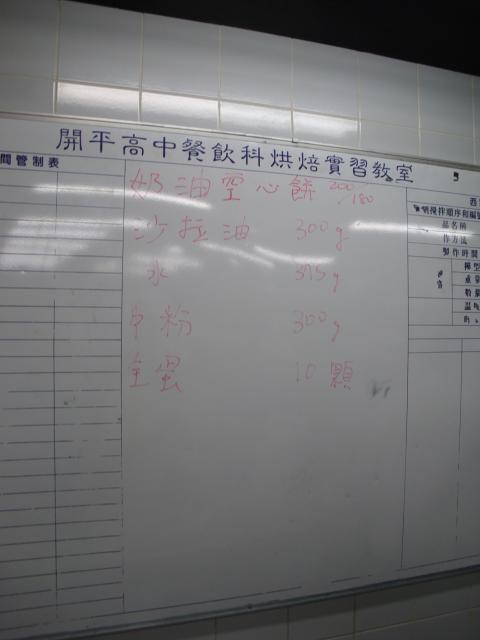 開平高中餐飲科烘焙實習教室
間管制表
奶油空心餅 200/180
沙拉油 300g
水 375g
中粉 300g
全蛋 10顆
攪拌順序和
品名稱
作方法
製作時間